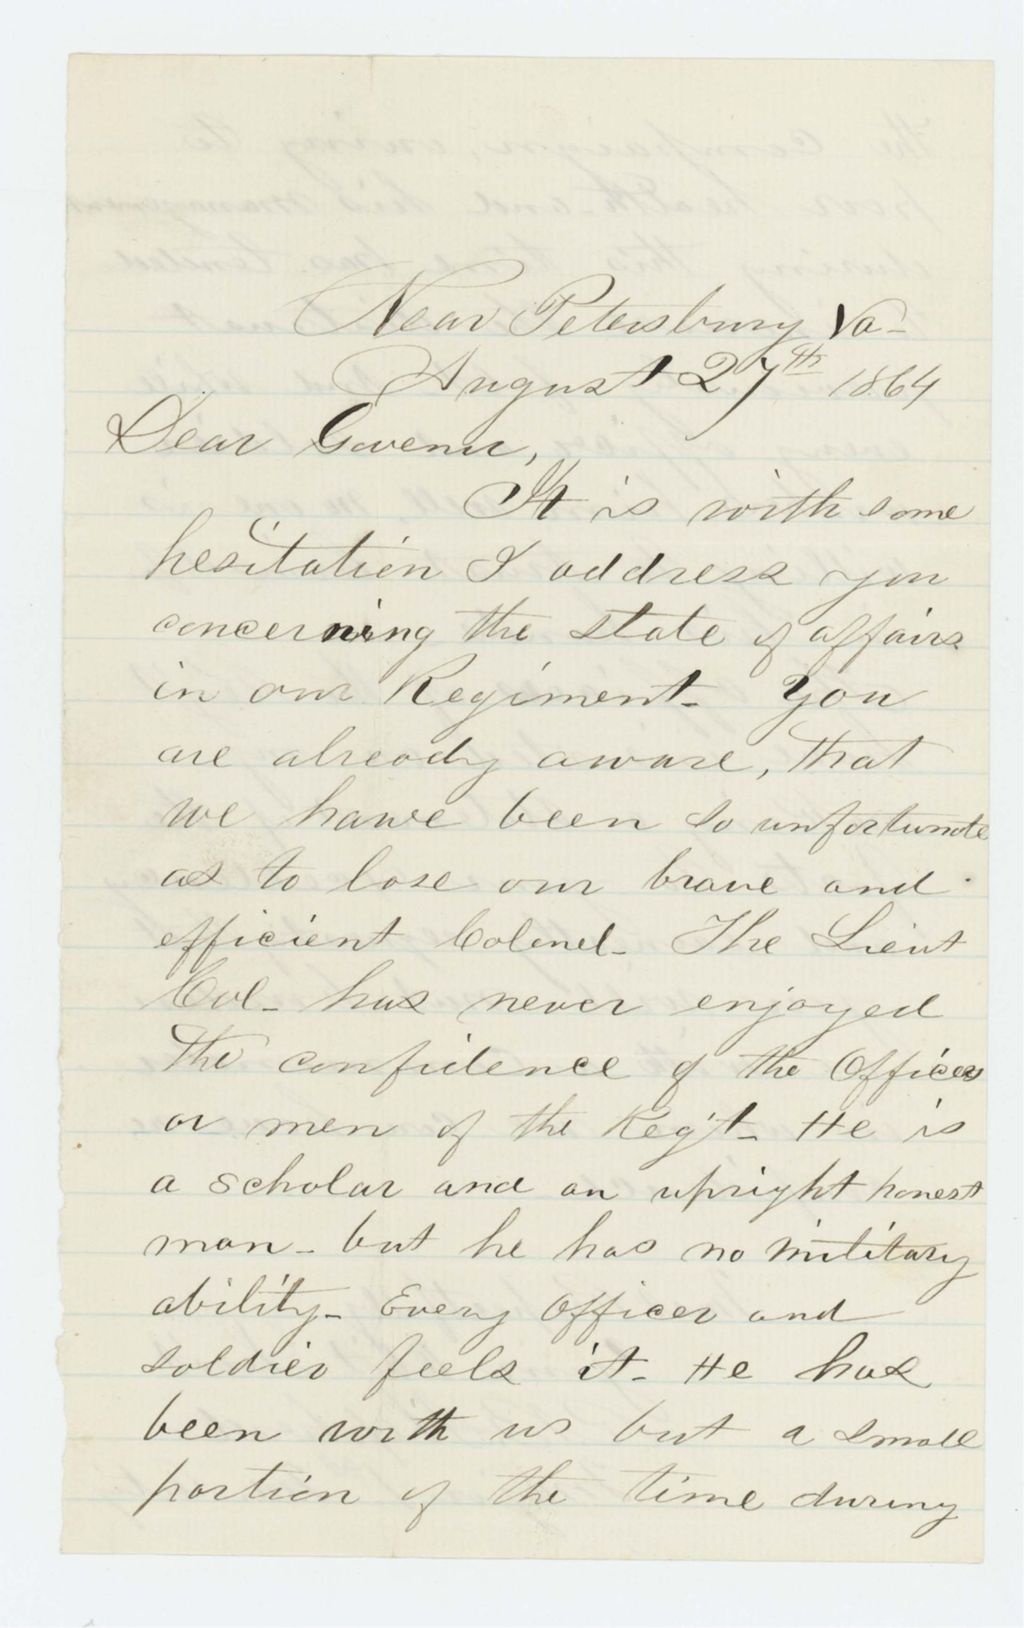 Near Petersburg Va-
August 27th 1864
Dear Govenor,
It is with some
hesitation I address you
concerning the state of affairs
in our Regiment- You
are already aware, that
we have been so unfortunate
as to lose our brave and
efficient Colonel- The Lieut
Col- has never enjoyed
the confidence of the Officers
or men of the Reg't- He is
a scholar and an upright honest
man- but he has no military
ability- Every Officer and
soldier feels it- He has
been with us but a small
portion of the time during